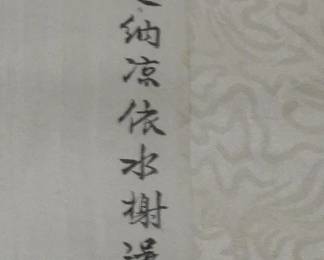 纳凉依水榭